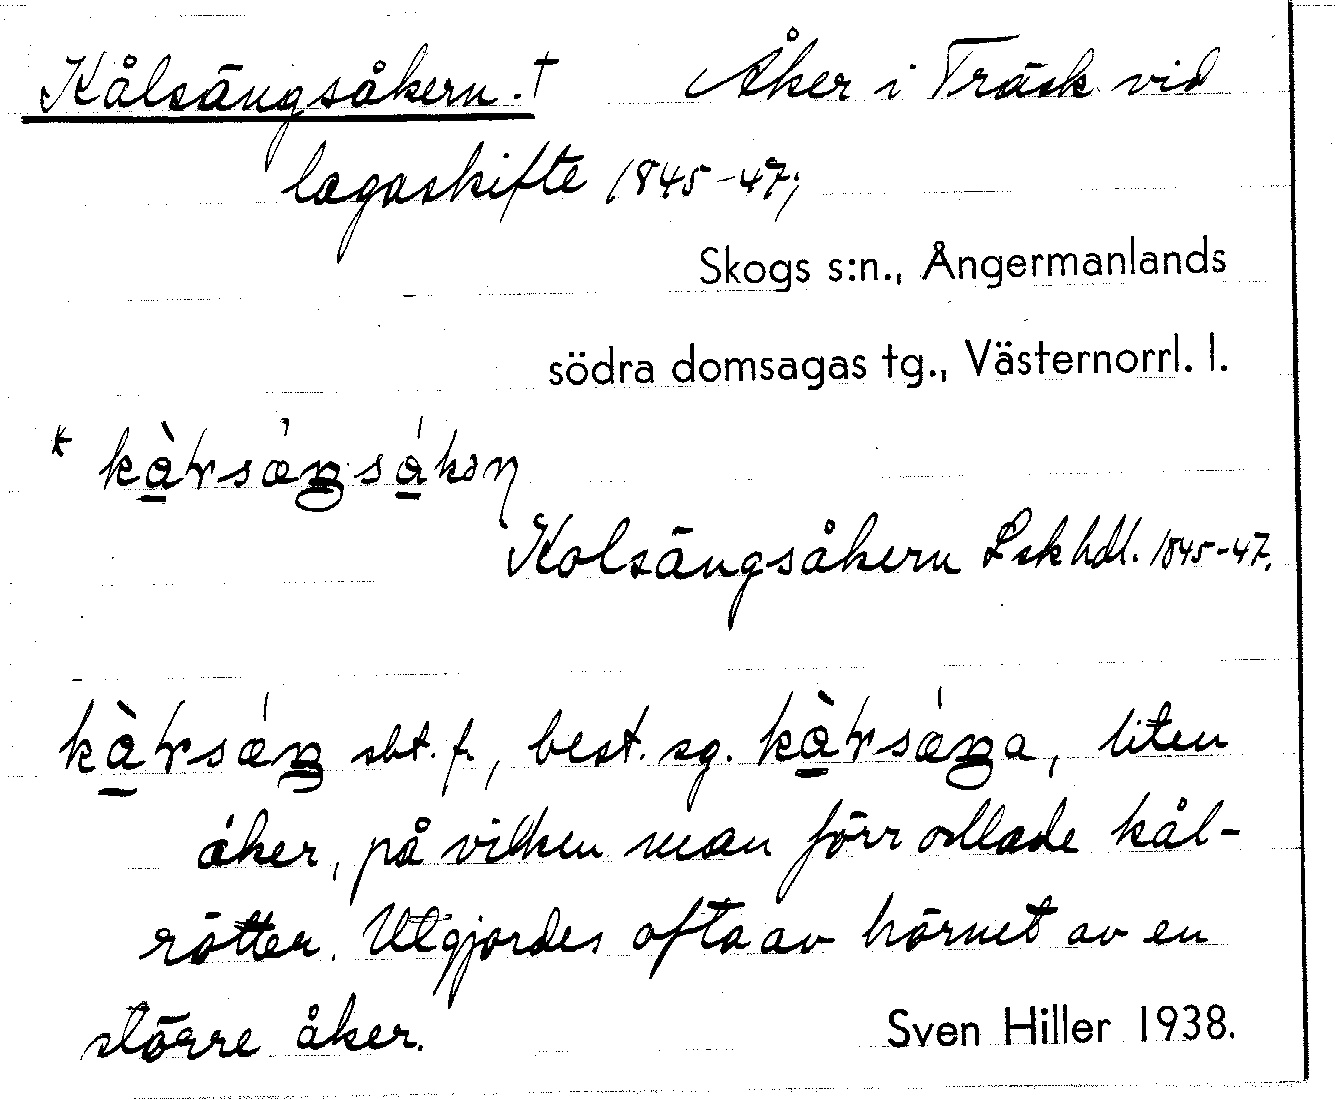 Kålsängsåkern.† Åker i Träsk vid
lagaskifte 1845-47;
Skogs s:n., Ångermanlands
södra domsagas tg., Västernorrl. l.
Kolsängsåkern Lskhdl. 1845-47.
sbt. f., best. sg. liten
åker, på vilken man förr odlade kål-
rötter. Utgjordes ofta av hörnet av en
större åker. Sven Hiller 1938.